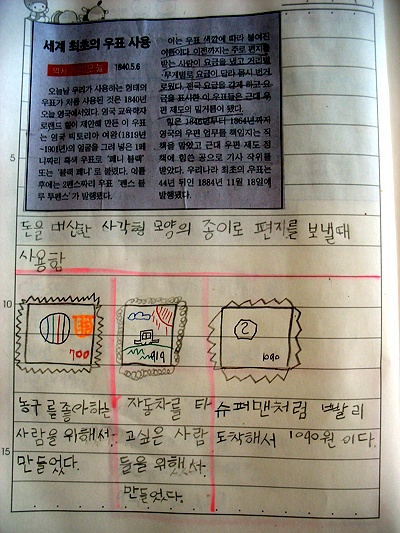 세계 최초의 우표 사용
역사 오늘 1840.5.6
오늘날 우리가 사용하는 형태의
우표가 처음 사용된 것은 1840년
오늘 영국에서였다. 영국 교육학자
로랜드 힐이 제안해 만든 이 우표
는 영국 빅토리아 여왕(1819년
~1901년)의 얼굴을 그려 넣은 1페
니짜리 흑색 우표로 '페니 블랙'
또는 '블랙 페니'로 불렸다. 이틀
후에는 2펜스짜리 우표 '펜스 블
루 투펜스'가 발행됐다.
이는 우표 색깔에 따라 붙여진
이름이다. 이전까지는 주로 편지를
받는 사람이 요금을 냈고 거리별
·무게별로 요금이 달라 몹시 번거
로웠다. 전국 요금을 같게 하고 요
금을 표시한 이 우표들은 근대 우
편 제도의 밑거름이 됐다.
힐은 1846년부터 1864년까지
영국의 우편 업무를 책임지는 직
책을 맡았고 근대 우편 제도 정
책에 힘쓴 공으로 기사 작위를
받았다. 우리나라 최초의 우표는
44년 뒤인 1884년 11월 18일에
발행됐다.
5
돈을 대신한 사각형 모양의 종이로 편지를 보낼때
사용함
10
700
919
2
1090
농구를 좋아하는
사람을 위해서
만들었다.
자동차를 타
고싶은 사람
들을 위해서
만들었다.
슈퍼맨처럼 빨리
도착해서 1090원 이다.
15